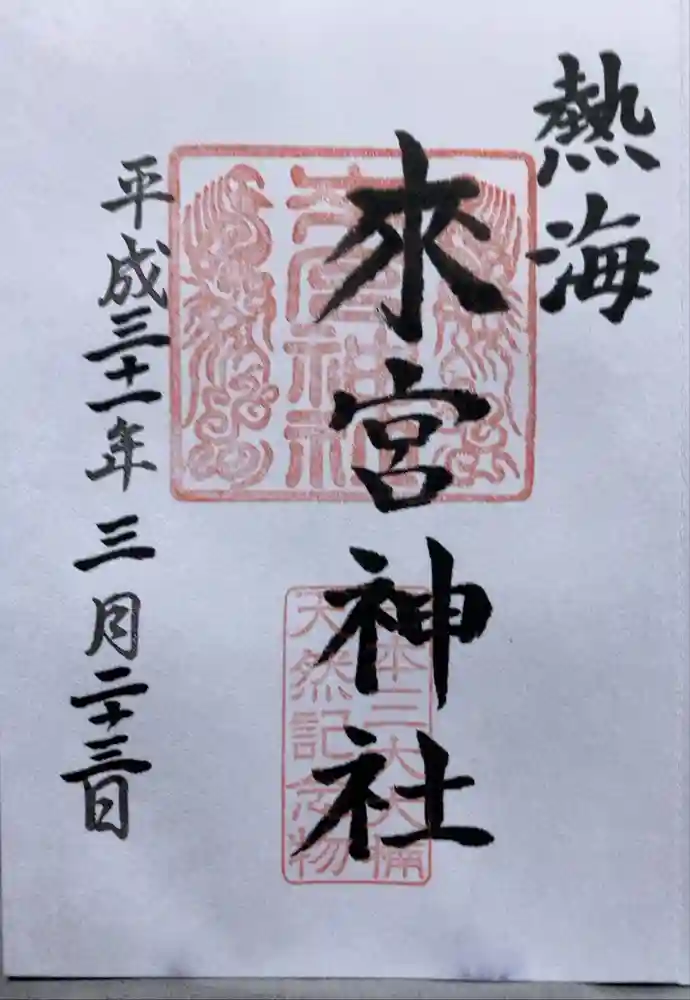 熱海
來宮神社
平成三十一年三月二十三日
來宮神社
本三大大楠
天然記念物